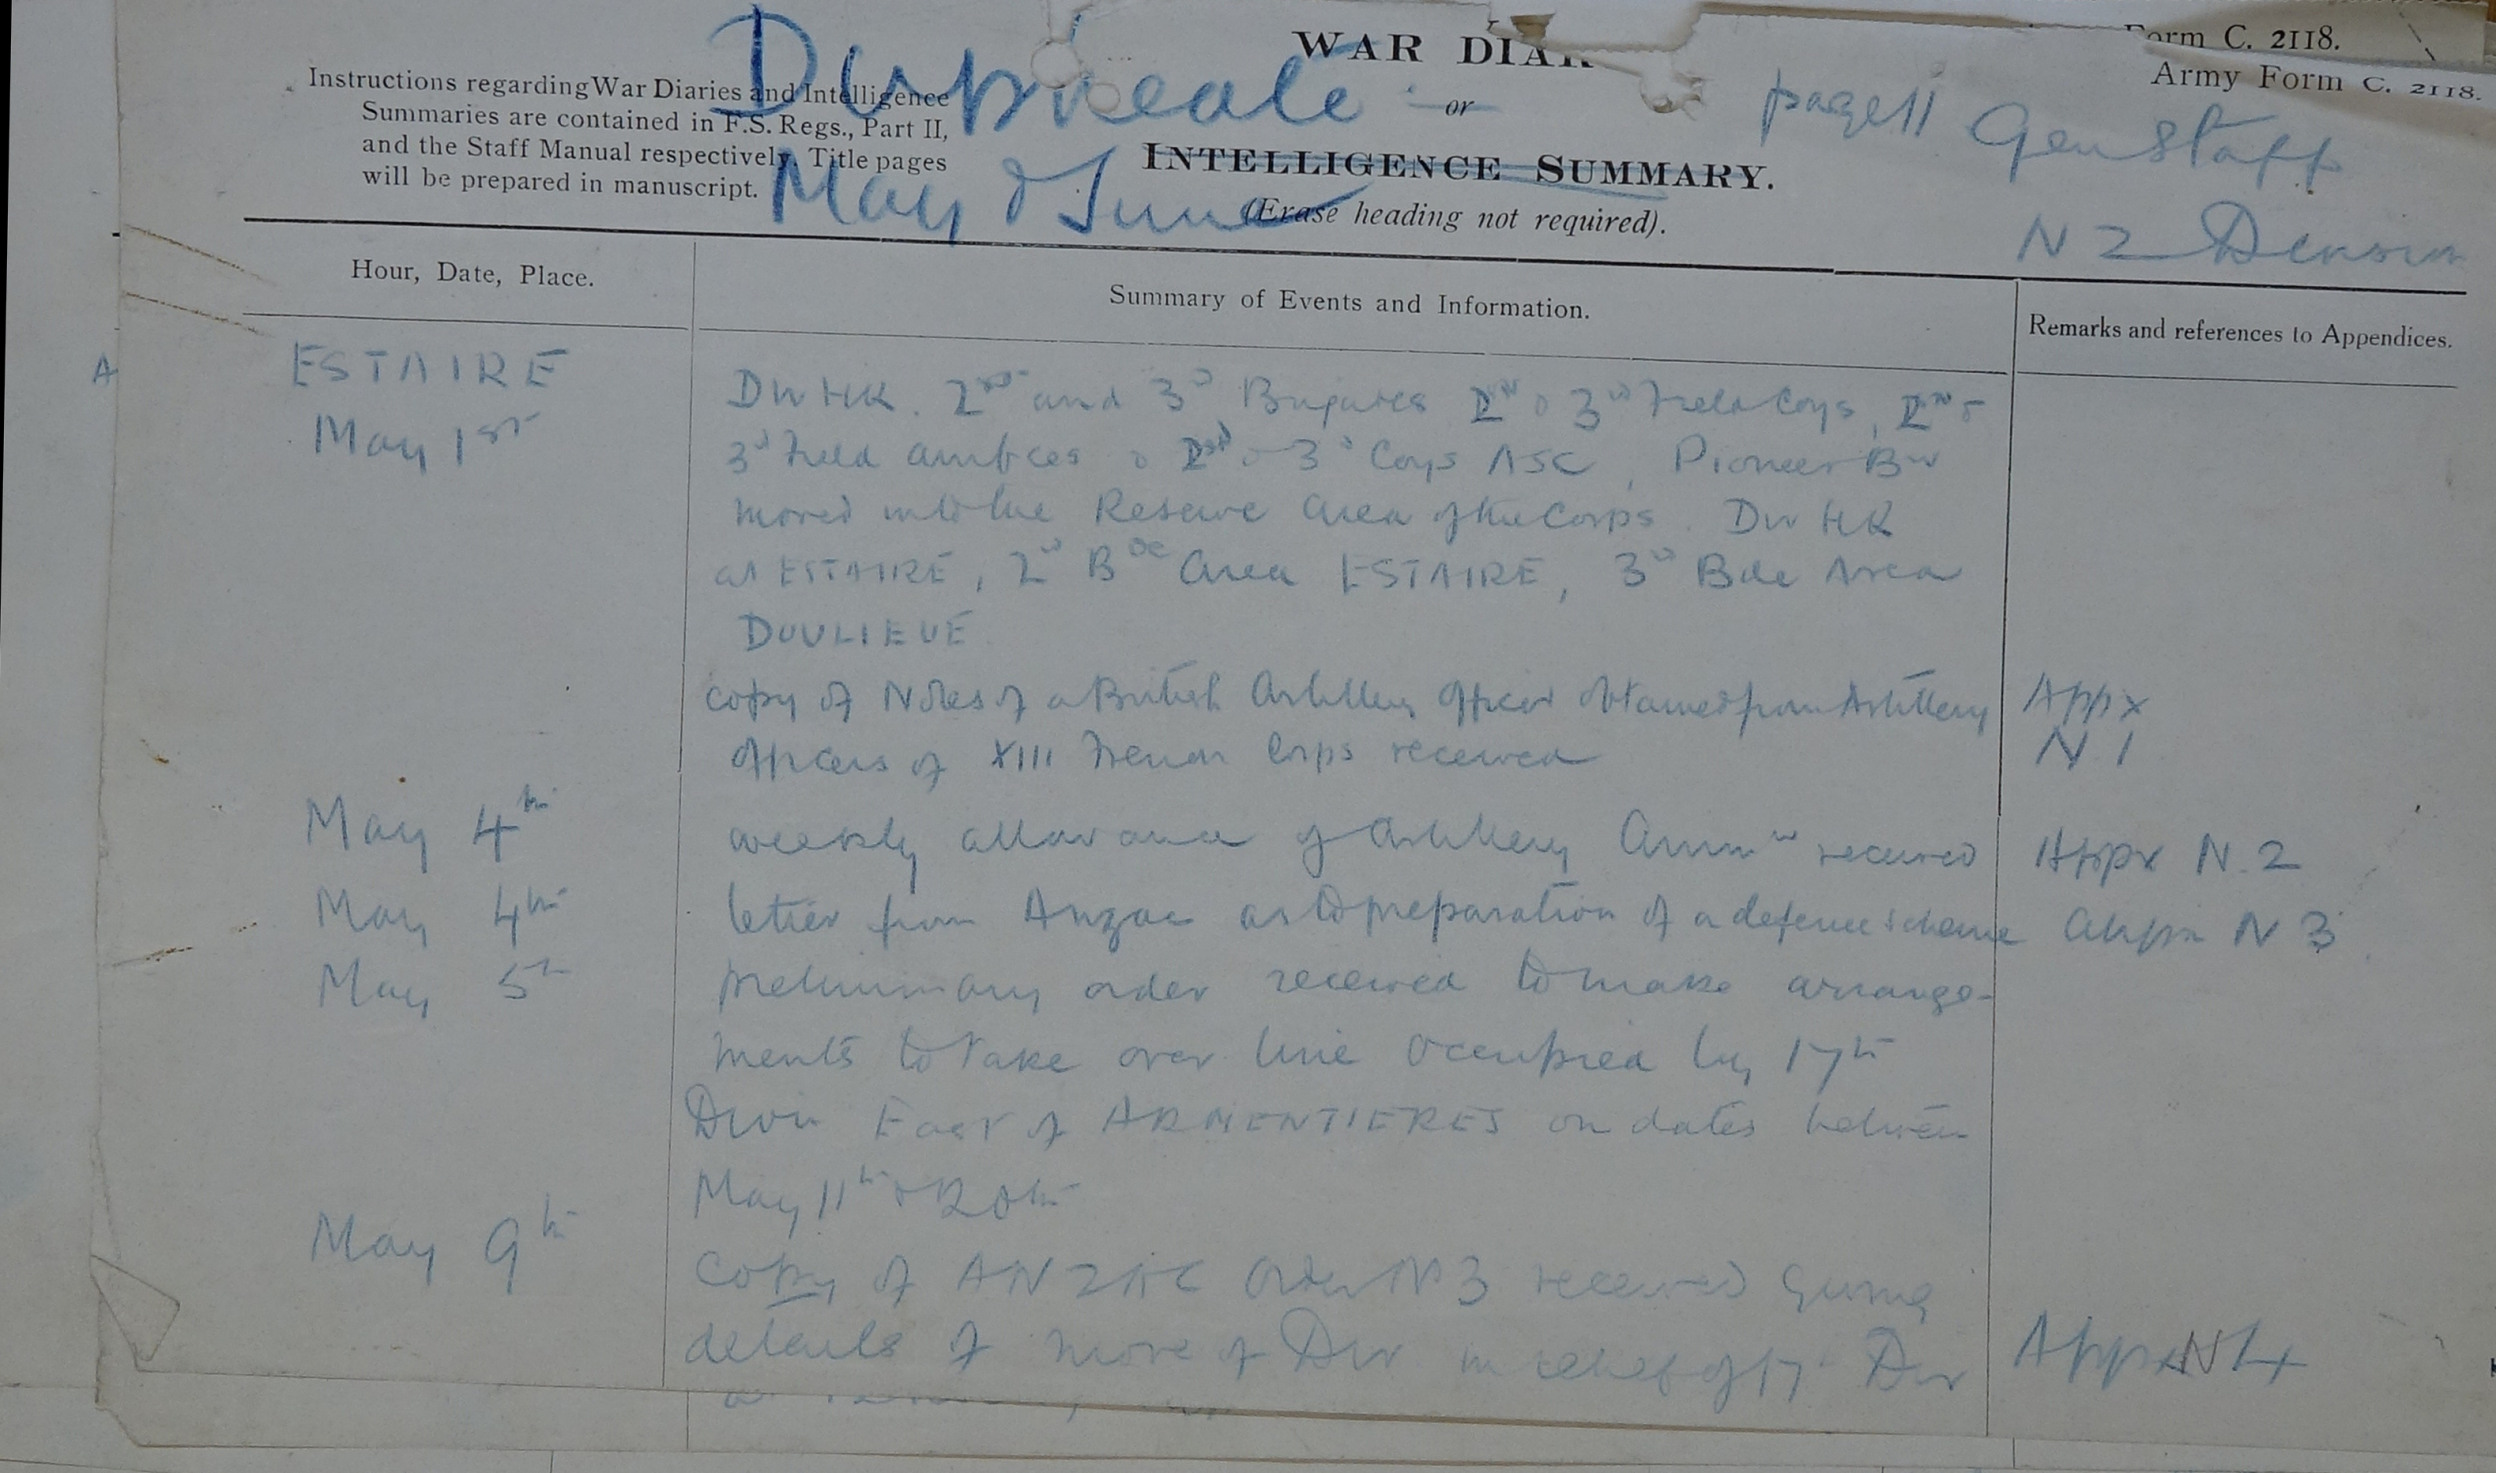 Form C. 2118.
Army Form C. 2118.
WAR DIA
or
INTELLIGENCE SUMMARY.
(Erase heading not required).
Instructions regarding War Diaries and Intelligence
Summaries are contained in F.S. Regs., Part II,
and the Staff Manual respectively. Title pages
will be prepared in manuscript.
Duplicate
May & June
page 11
Gen Staff
N Z Division
Hour, Date, Place.
Summary of Events and Information.
Remarks and references to Appendices.
ESTAIRE
May 1st
Div HQ. 2nd and 3d Brigades 2nd & 3d Field Coys, 2nd &
3d Field ambces & 2nd & 3d Coys ASC, Pioneer Bn
moved into the Reserve area of the Corps. Div HQ
at ESTAIRE, 2d Bde area ESTAIRE, 3d Bde Area
DOULIEUE
copy of Notes of a British Artillery Officer obtained from Artillery
Officers of XIII French Corps received
Appx
N 1
May 4th
weekly allowance of Artillery Ammn received
Appx N. 2
May 4th
letter from Anzac as to preparation of a defence scheme
Appx N 3
May 5th
preliminary order received to make arrange-
ments to take over line occupied by 17th
Divn East of ARMENTIERES on dates between
May 11th & 20th
May 9th
Copy of ANZAC Order No 3 received giving
details of move of Div in relief of 17 Div
Appx N 4